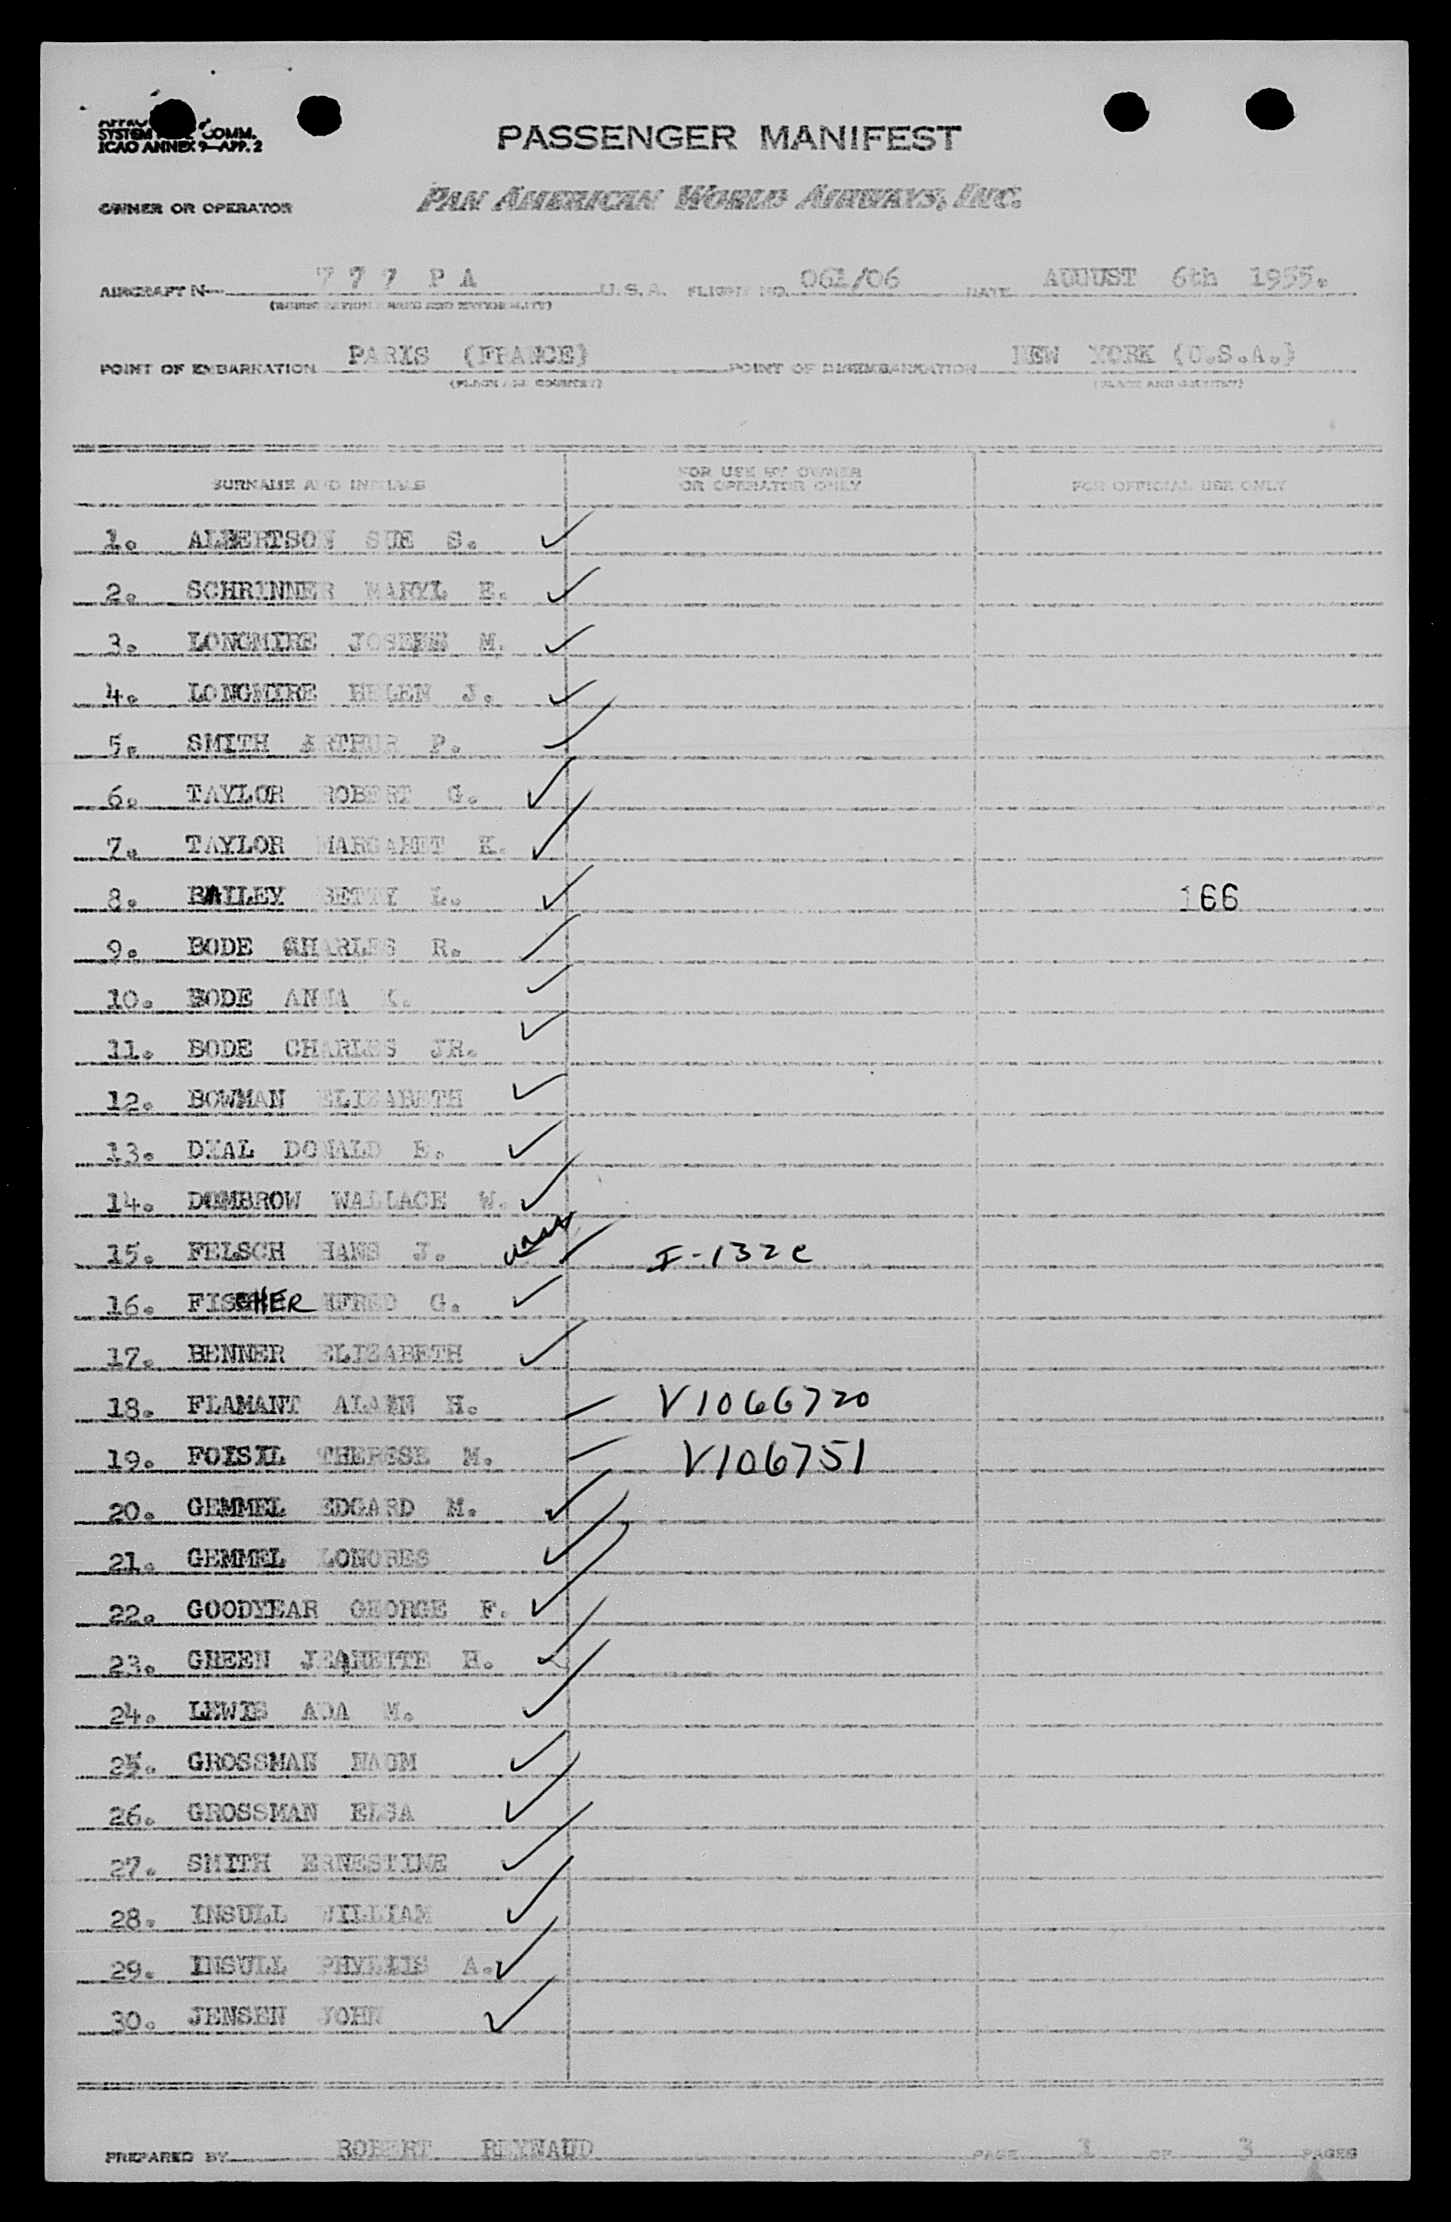 SYSTEM COMM.
ICAO ANNEX 9—APP. 2
PASSENGER MANIFEST
OWNER OR OPERATOR PAN AMERICAN WORLD AIRWAYS, INC.
AIRCRAFT N— 777 PA U.S.A. FLIGHT NO. 061/06 DATE AUGUST 6th 1955.
POINT OF EMBARKATION PARIS (FRANCE) POINT OF DISEMBARKATION NEW YORK (U.S.A.)
(PLACE AND COUNTRY) (PLACE AND COUNTRY)
SURNAME AND INITIALS FOR USE BY OWNER OR OPERATOR ONLY FOR OFFICIAL USE ONLY
1. ALBERTSON SUE S.
2. SCHRINNER MARYL E.
3. LONGMIRE JOSEPH M.
4. LONGMIRE HELEN J.
5. SMITH ARTHUR P.
6. TAYLOR ROBERT G.
7. TAYLOR MARGARET K.
8. BAILEY BETTY L. 166
9. BODE CHARLES R.
10. BODE ANNA K.
11. BODE CHARLES JR.
12. BOWMAN ELIZABETH
13. DIAL DONALD E.
14. DOMBROW WALLACE W.
15. FELSCH HANS J. I-132c
16. FISCHER EFRED G.
17. BENNER ELIZABETH
18. FLAMANT ALAIN H. V1066720
19. FOISIL THERESE M. V106751
20. GEMMEL EDGARD M.
21. GEMMEL LONORES
22. GOODYEAR GEORGE F.
23. GREEN JEANETTE H.
24. LEWIS ADA M.
25. GROSSMAN NAUM
26. GROSSMAN ELSA
27. SMITH ERNESTINE
28. INSULL WILLIAM
29. INSULL PHYLLIS A.
30. JENSEN JOHN
PREPARED BY ROBERT REYNAUD PAGE 1 OF 3 PAGES